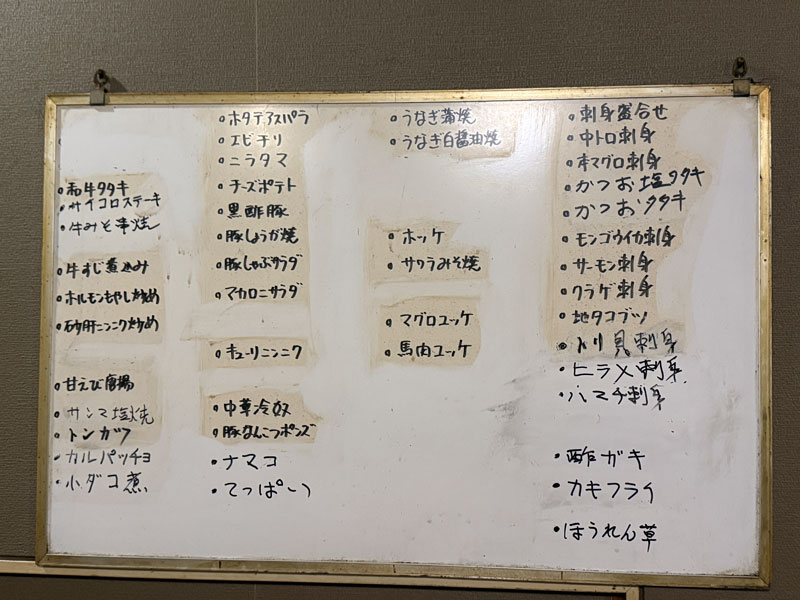 ・和牛タタキ
・サイコロステーキ
・牛みそ串焼
・牛すじ煮込み
・ホルモンもやし炒め
・砂肝ニンニク炒め
・甘えび唐揚
・サンマ塩焼
・トンカツ
・カルパッチョ
・小ダコ煮
・ホタテアスパラ
・エビチリ
・ニラタマ
・チーズポテト
・黒酢豚
・豚しょうが焼
・豚しゃぶサラダ
・マカロニサラダ
・キューリニンニク
・中華冷奴
・豚なんこつポンズ
・ナマコ
・てっぱい
・うなぎ蒲焼
・うなぎ白醤油焼
・ホッケ
・サワラみそ焼
・マグロユッケ
・馬肉ユッケ
・刺身盛合せ
・中トロ刺身
・本マグロ刺身
・かつお塩タタキ
・かつおタタキ
・モンゴウイカ刺身
・サーモン刺身
・クラゲ刺身
・地タコブツ
・トリ貝刺身
・ヒラメ刺身
・ハマチ刺身
・酢ガキ
・カキフライ
・ほうれん草